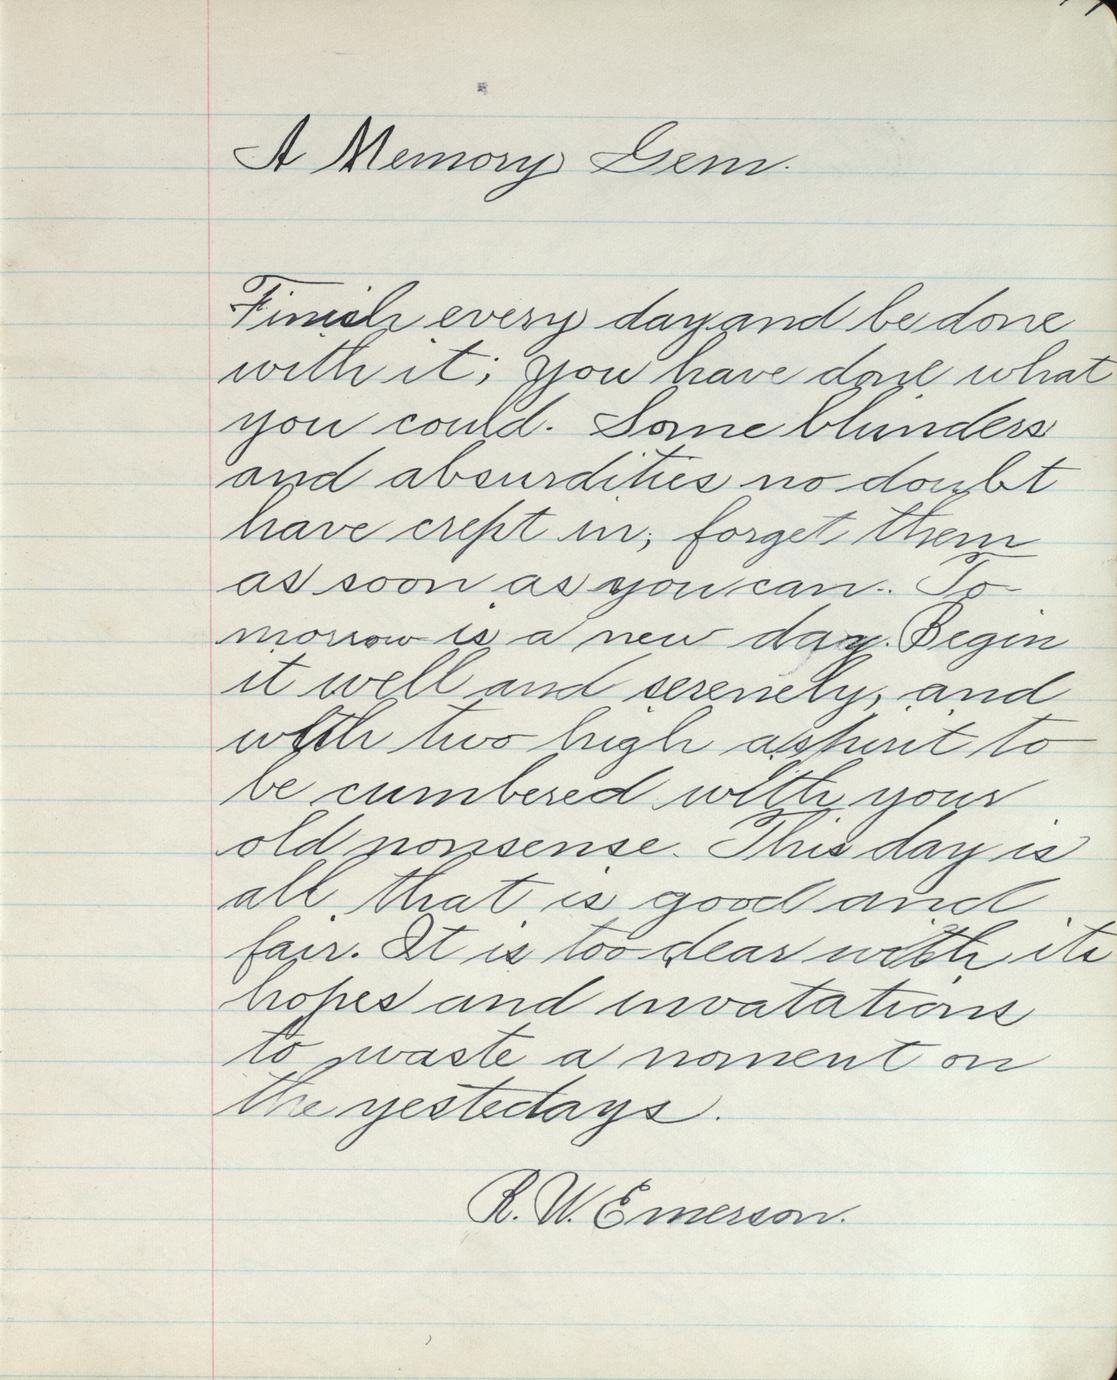 A Memory Gem.
Finish every day and be done
with it; you have done what
you could. Some blunders
and absurdities no doubt
have crept in; forget them
as soon as you can. To
morrow is a new day. Begin
it well and serenely, and
with two high a spirit to
be cumbered with your
old nonsense. This day is
all that is good and
fair. It is too dear with its
hopes and invatations
to waste a moment on
the yestedays.
R. W. Emerson.